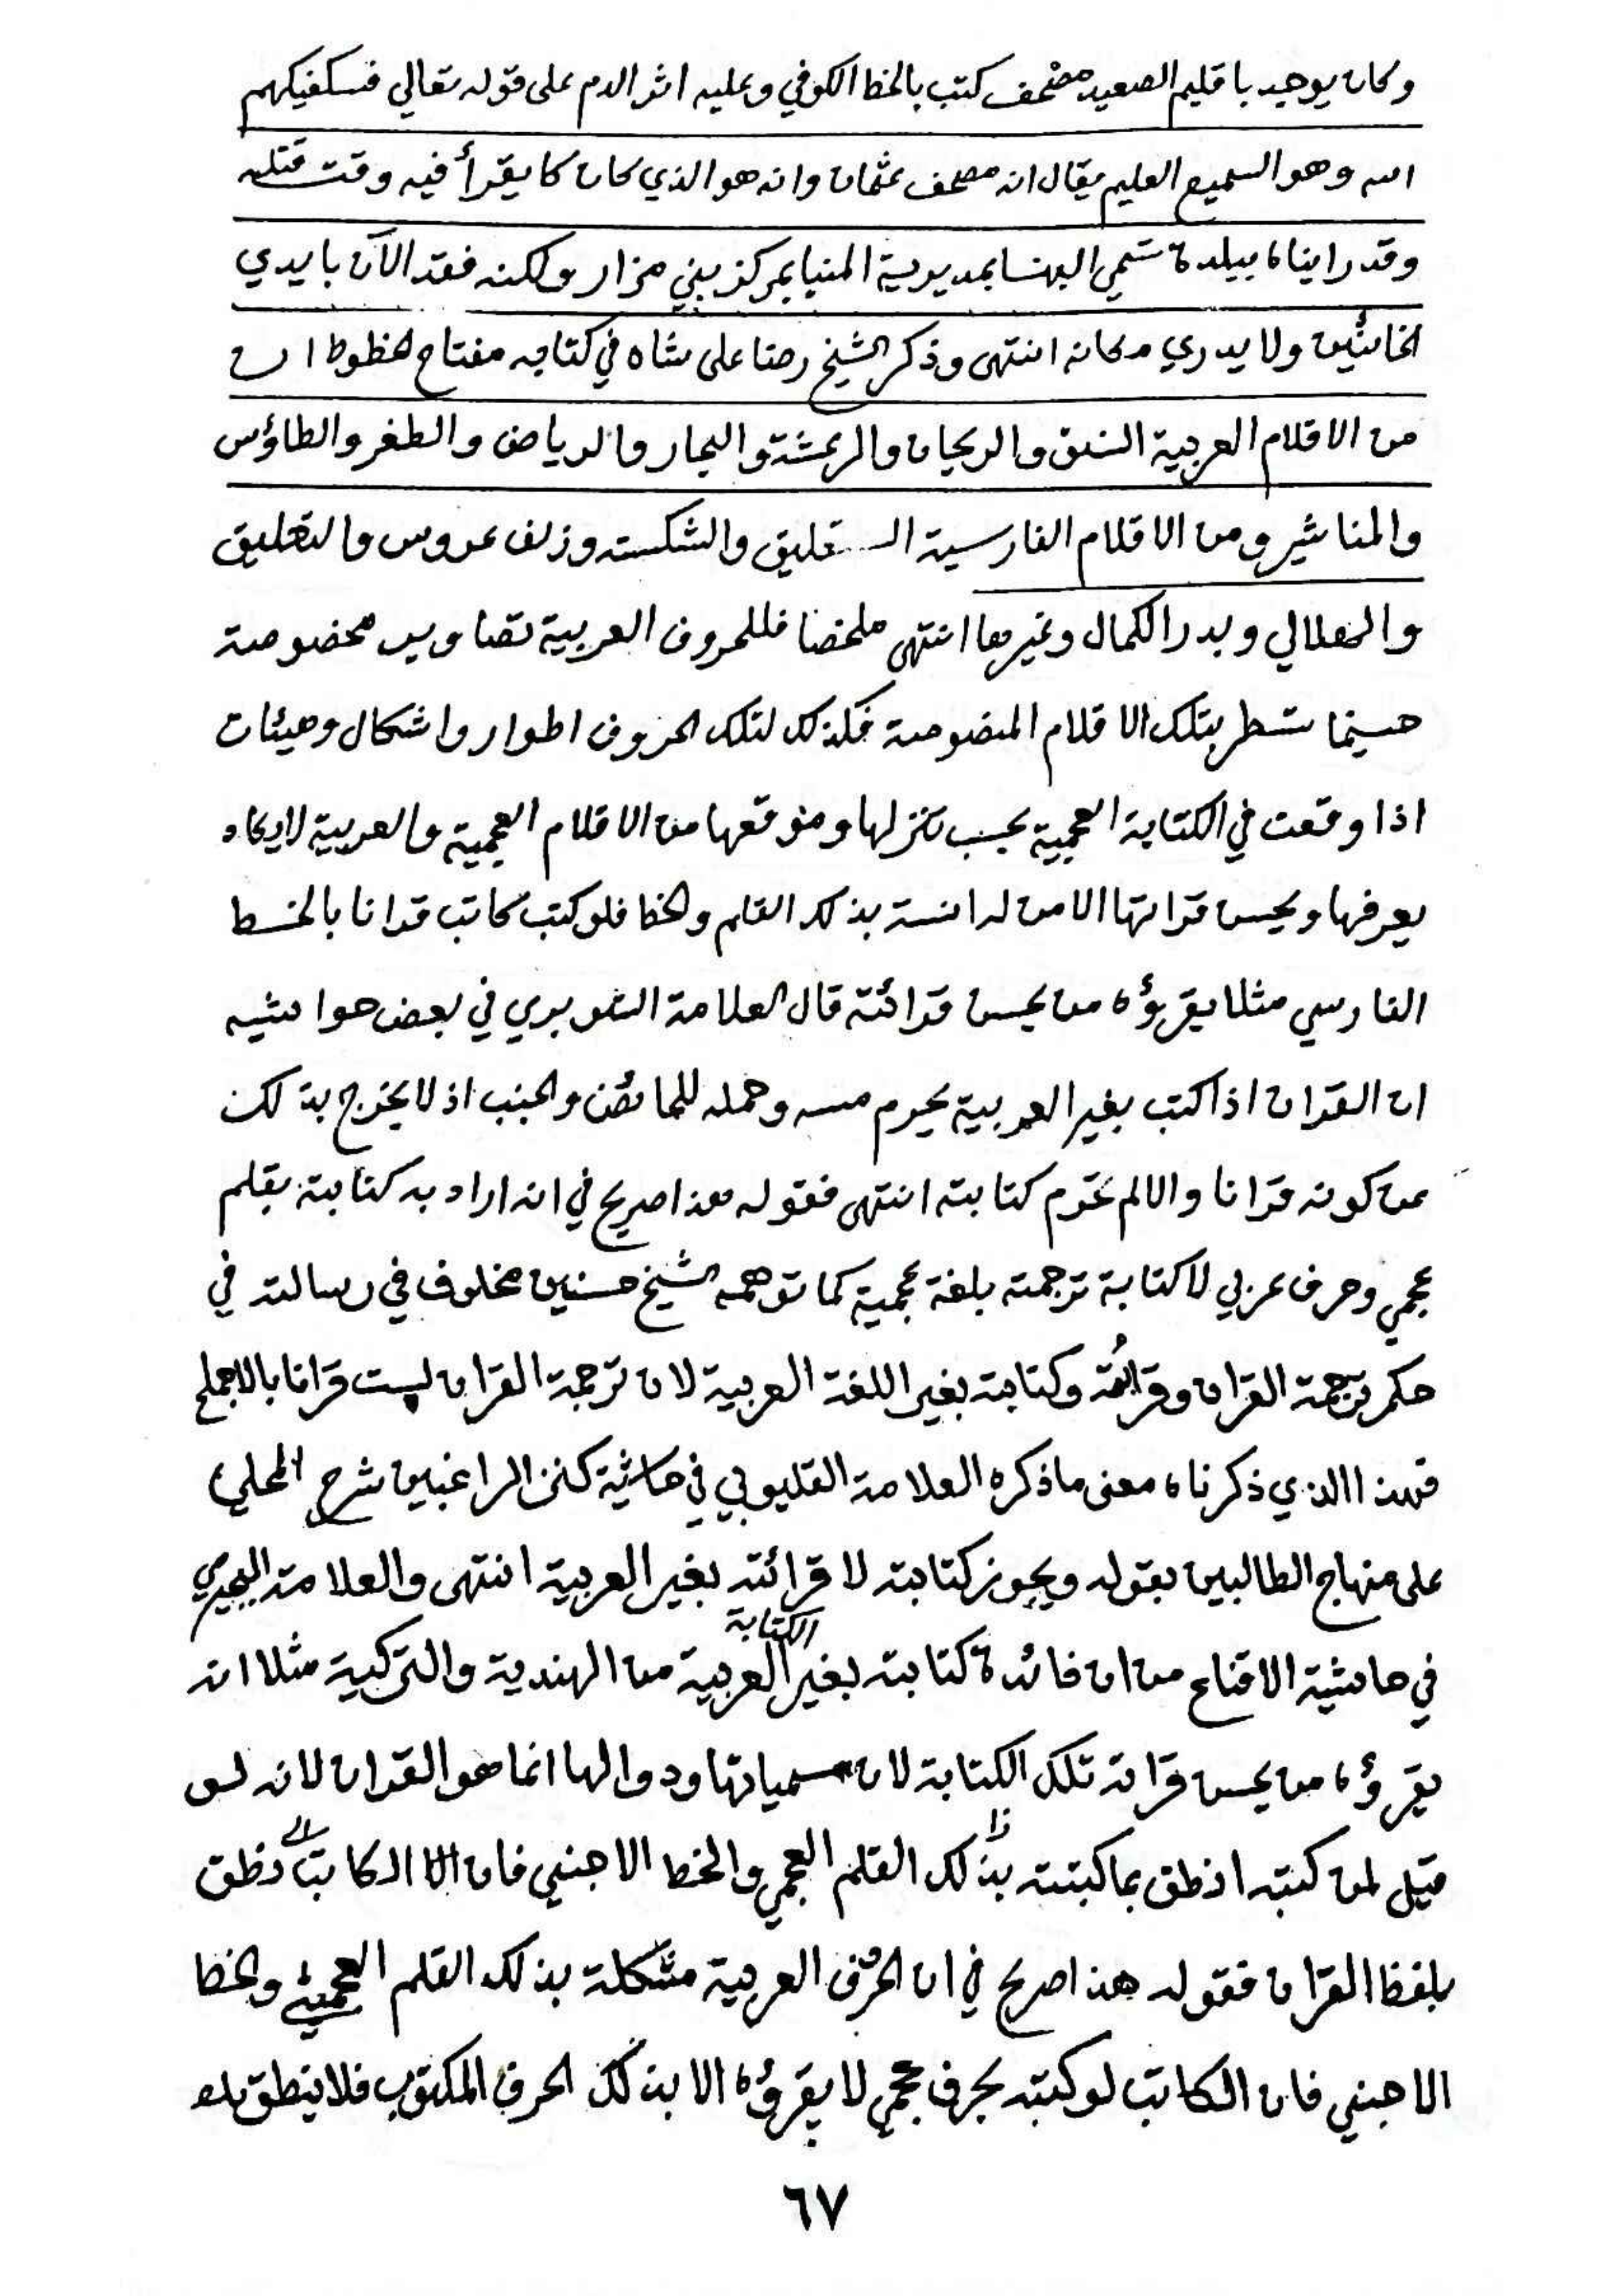 وكان يوجد باقليم الصعيد مصحف كتب بالخط الكوفي وعليه اثر الدم على قوله تعالي فسكفيكهم
الله وهو السميع العليم يقال انه مصحف عثمان وانه هو الذي كان كا يقرأ فيه وقت قتله
وقد رايناه ببلدة تسمي البهنسا بمديرية المنيا بمركز بني مزار ولكنه فقد الآن بايدي
الخائنين ولا يدري مكانه انتهى وذكر الشيخ رضا على شاه في كتابه مفتاح الخطوط ان
من الاقلام العربية النسق والريحان والرعشة والبحار والرياض والطغر والطاؤس
والمناشير ومن الاقلام الفارسية الستقليق والشكسته وزلف عروس والتعليق
والهلالي وبدر الكمال وغيرها انتهى ملخصا فللحروف العربية تصاوير مخصوصة
حسبما تسطر بتلك الاقلام المنصوصة فكذلك لتلك الحروف اطوار واشكال وهيئات
اذا وقعت في الكتابة العجمية بحسب تنزلها وموقعها من الاقلام العجمية والعربية لايكاد
يعرفها ويحسن قراتها الا من له انسة بذلك القلم والخط فلو كتب كاتب قرانا بالخط
الفارسي مثلا يقرؤه من يحسن قرائته قال العلامة الشوبري في بعض حواشيه
ان القران اذا كتب بغير العربية يحرم مسه وحمله للحائض والجنب اذ لا يخرج بذلك
عن كونه قرانا والا لم تحرم كتابته انتهى فقوله هذا صريح في انه اراد به كتابته بقلم
عجمي وحرف عربي لا كتابة ترجمته بلغة عجمية كما توهمه الشيخ حسنين مخلوف في رسالته في
حكم ترجمة القران وقرائته وكتابته بغير اللغة العربية لان ترجمة القران ليست قرانا بالاجماع
فهذا الذي ذكرناه معنى ما ذكره العلامة القليوبي في حاشية كنز الراغبين شرح المحلي
على منهاج الطالبين بقوله ويجوز كتابته لا قرائته بغير العربية انتهى والعلامة البجيرمي
في حاشية الاقناع من ان فائدة كتابته بغير الكتابة العربية من الهندية والتركية مثلا انه
يقرؤه من يحسن قراته تلك الكتابة لان مسمياتها ودوالها انما هو القران لانه لو
قيل لمن كتبه انطق بما كبتته بذلك القلم العجمي والخط الاجنبي فان الكاتب نطق
بلفظ القران فقوله هذا صريح في ان الحرف العربية مشكلة بذلك القلم العجمي والخط
الاجنبي فان الكاتب لو كبته بحرف عجمي لا يقرؤه الا بذلك الحرف المكتوب فلا ينطق بلف
٦٧